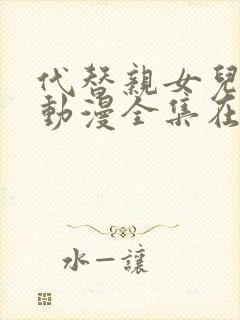 代替親女兒
動漫全集在
水一讓